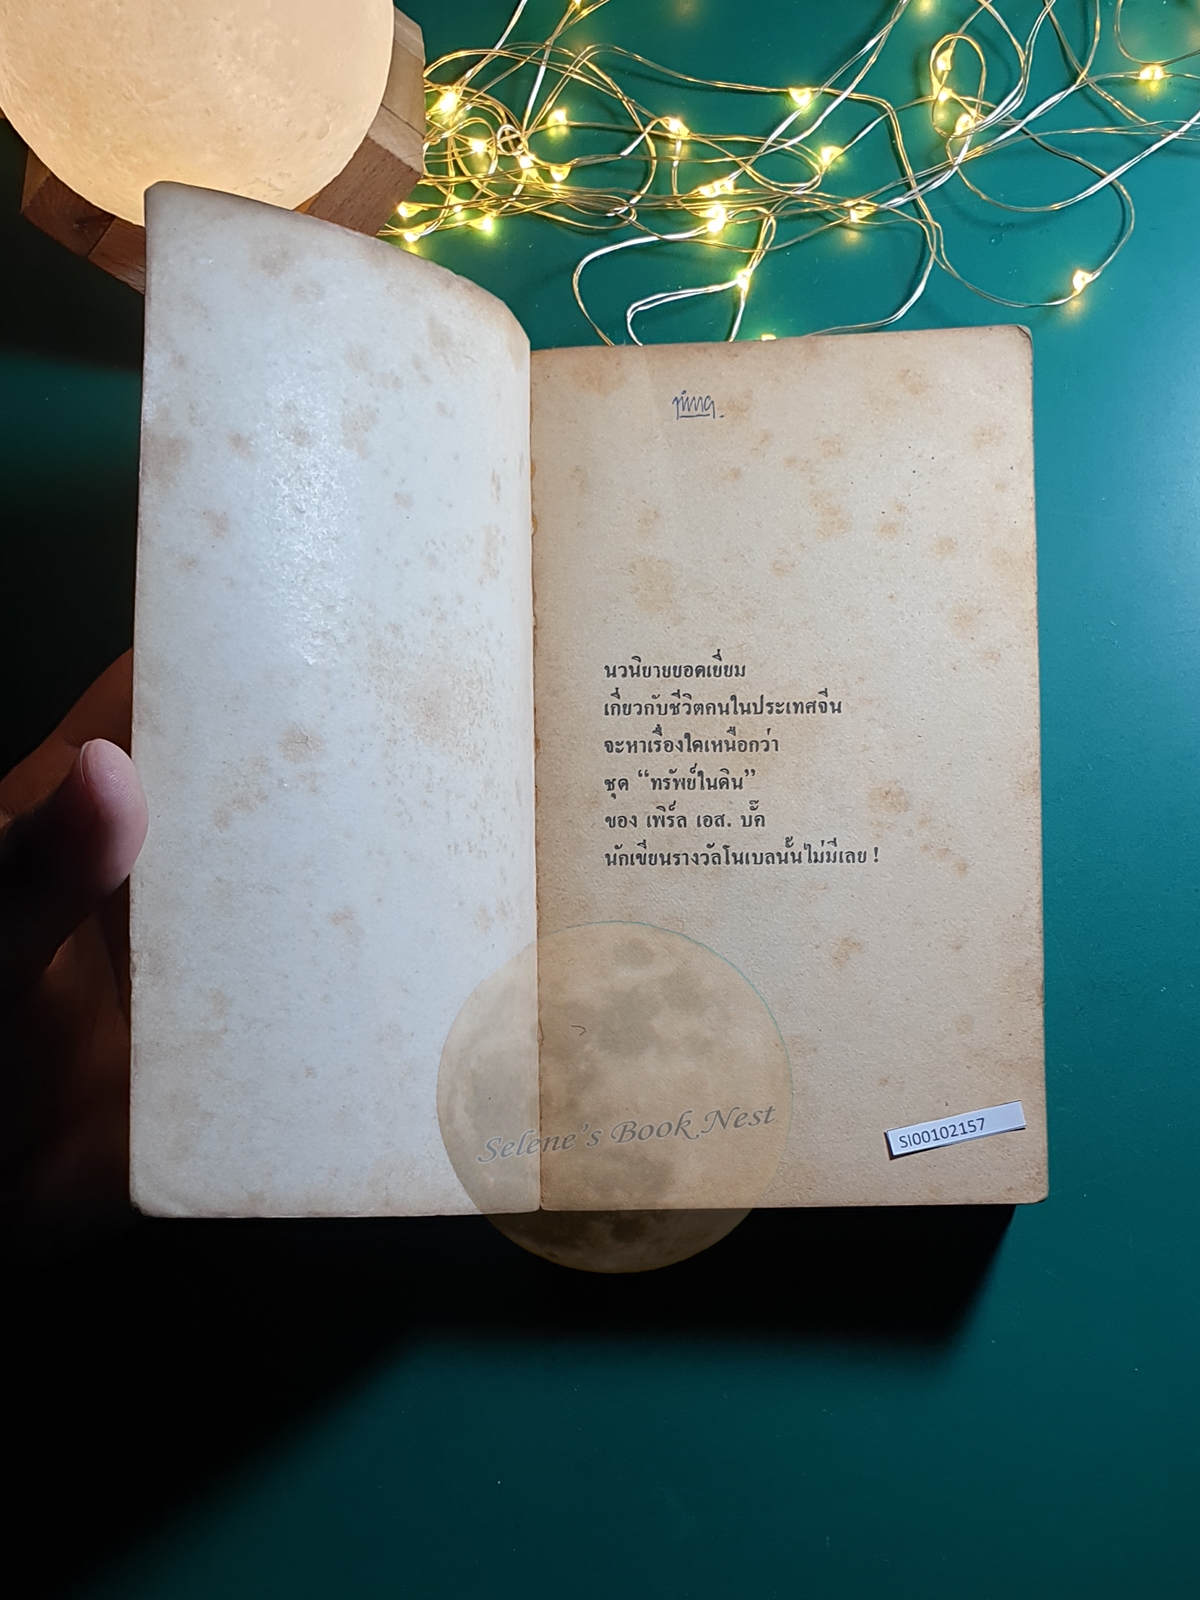 นวนิยายยอดเยี่ยม
เกี่ยวกับชีวิตคนในประเทศจีน
จะหาเรื่องใดเหนือกว่า
ชุด “ทรัพย์ในดิน”
ของ เพิร์ล เอส. บั๊ค
นักเขียนรางวัลโนเบลนั้นไม่มีเลย !
Selene's Book Nest
SI00102157